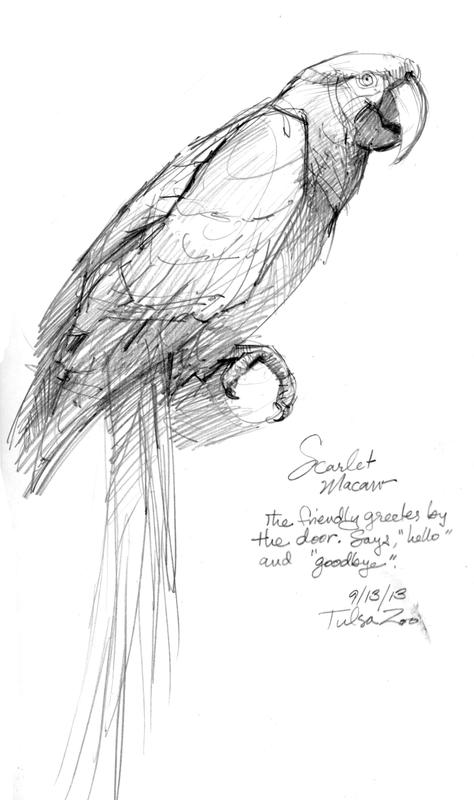 Scarlet
Macaw
The friendly greeter by
the door. Says, "hello"
and "goodbye".
9/13/13
Tulsa Zoo